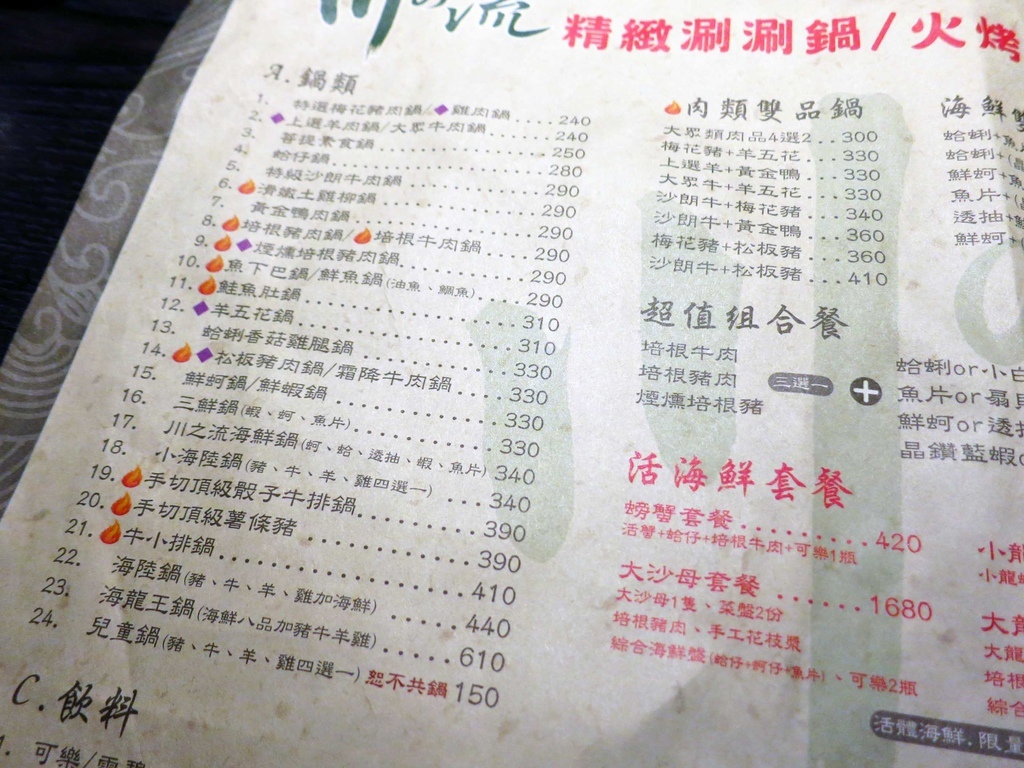 川の流 精緻涮涮鍋/火烤
A.鍋類
1. 特選梅花豬肉鍋/雞肉鍋.....240
2. 上選羊肉鍋/大眾牛肉鍋.....240
3. 菩提素食鍋.....250
4. 蛤仔鍋.....280
5. 特級沙朗牛肉鍋.....290
6. 滑嫩土雞柳鍋.....290
7. 黃金鴨肉鍋.....290
8. 培根豬肉鍋/培根牛肉鍋.....290
9. 煙燻培根豬肉鍋.....290
10. 魚下巴鍋/鮮魚鍋(油魚、鯛魚).....290
11. 鮭魚肚鍋.....310
12. 羊五花鍋.....310
13. 蛤蜊香菇雞腿鍋.....330
14. 松板豬肉鍋/霜降牛肉鍋.....330
15. 鮮蚵鍋/鮮蝦鍋.....330
16. 三鮮鍋(蝦、蚵、魚片).....330
17. 川之流海鮮鍋(蚵、蛤、透抽、蝦、魚片) 340
18. 小海陸鍋(豬、牛、羊、雞四選一)...340
19. 手切頂級骰子牛排鍋.....390
20. 手切頂級薯條豬.....390
21. 牛小排鍋.....410
22. 海陸鍋(豬、牛、羊、雞加海鮮).....440
23. 海龍王鍋(海鮮八品加豬牛羊雞).....610
24. 兒童鍋(豬、牛、羊、雞四選一)恕不共鍋150
C.飲料
1. 可樂/雪碧
肉類雙品鍋
大眾類肉品4選2...300
梅花豬+羊五花...330
上選羊+黃金鴨...330
大眾牛+羊五花...330
沙朗牛+梅花豬...340
沙朗牛+黃金鴨...360
梅花豬+松板豬...360
沙朗牛+松板豬...410
超值組合餐
培根牛肉
培根豬肉
煙燻培根豬
三選一
+
蛤蜊or小白
魚片or扇貝
鮮蚵or透抽
晶鑽藍蝦
活海鮮套餐
螃蟹套餐.........420
活蟹+蛤仔+培根牛肉+可樂1瓶
大沙母套餐......1680
大沙母1隻、菜盤2份
培根豬肉、手工花枝漿
綜合海鮮盤(蛤仔+蚵仔+魚片)、可樂2瓶
海鮮雙
蛤蜊+魚
蛤蜊+
鮮蚵+
魚片+
透抽+
鮮蚵+
小龍
小龍蝦
大龍
大龍
培根
綜合
活體海鮮.限量